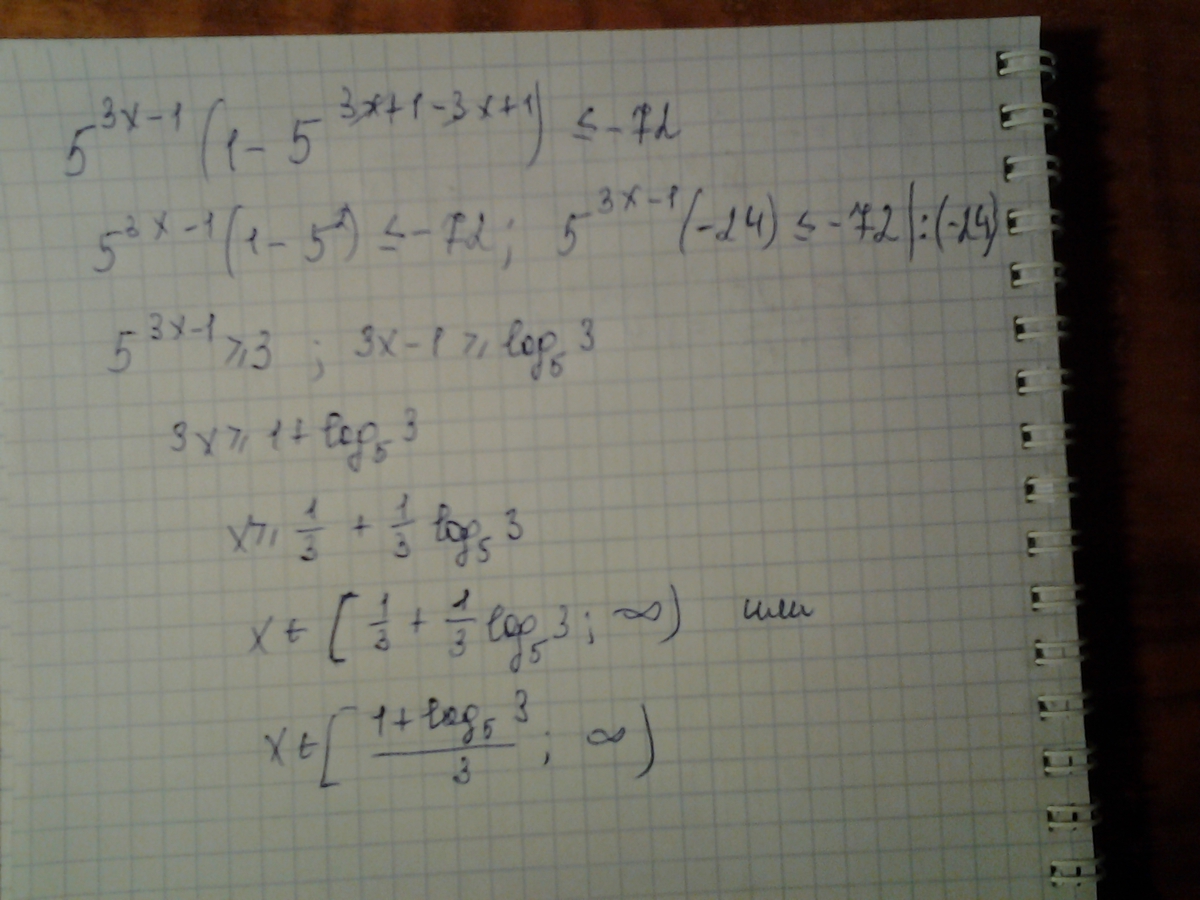 5^(3x-1) (1 - 5^(3x+1-3x+1)) ≤ -72
5^(3x-1) (1 - 5^2) ≤ -72; 5^(3x-1) (-24) ≤ -72 |:(-24)
5^(3x-1) ≥ 3 ; 3x-1 ≥ log₅ 3
3x ≥ 1 + log₅ 3
x ≥ 1/3 + 1/3 log₅ 3
x ∈ [1/3 + 1/3 log₅ 3; ∞) или
x ∈ [(1 + log₅ 3)/3; ∞)